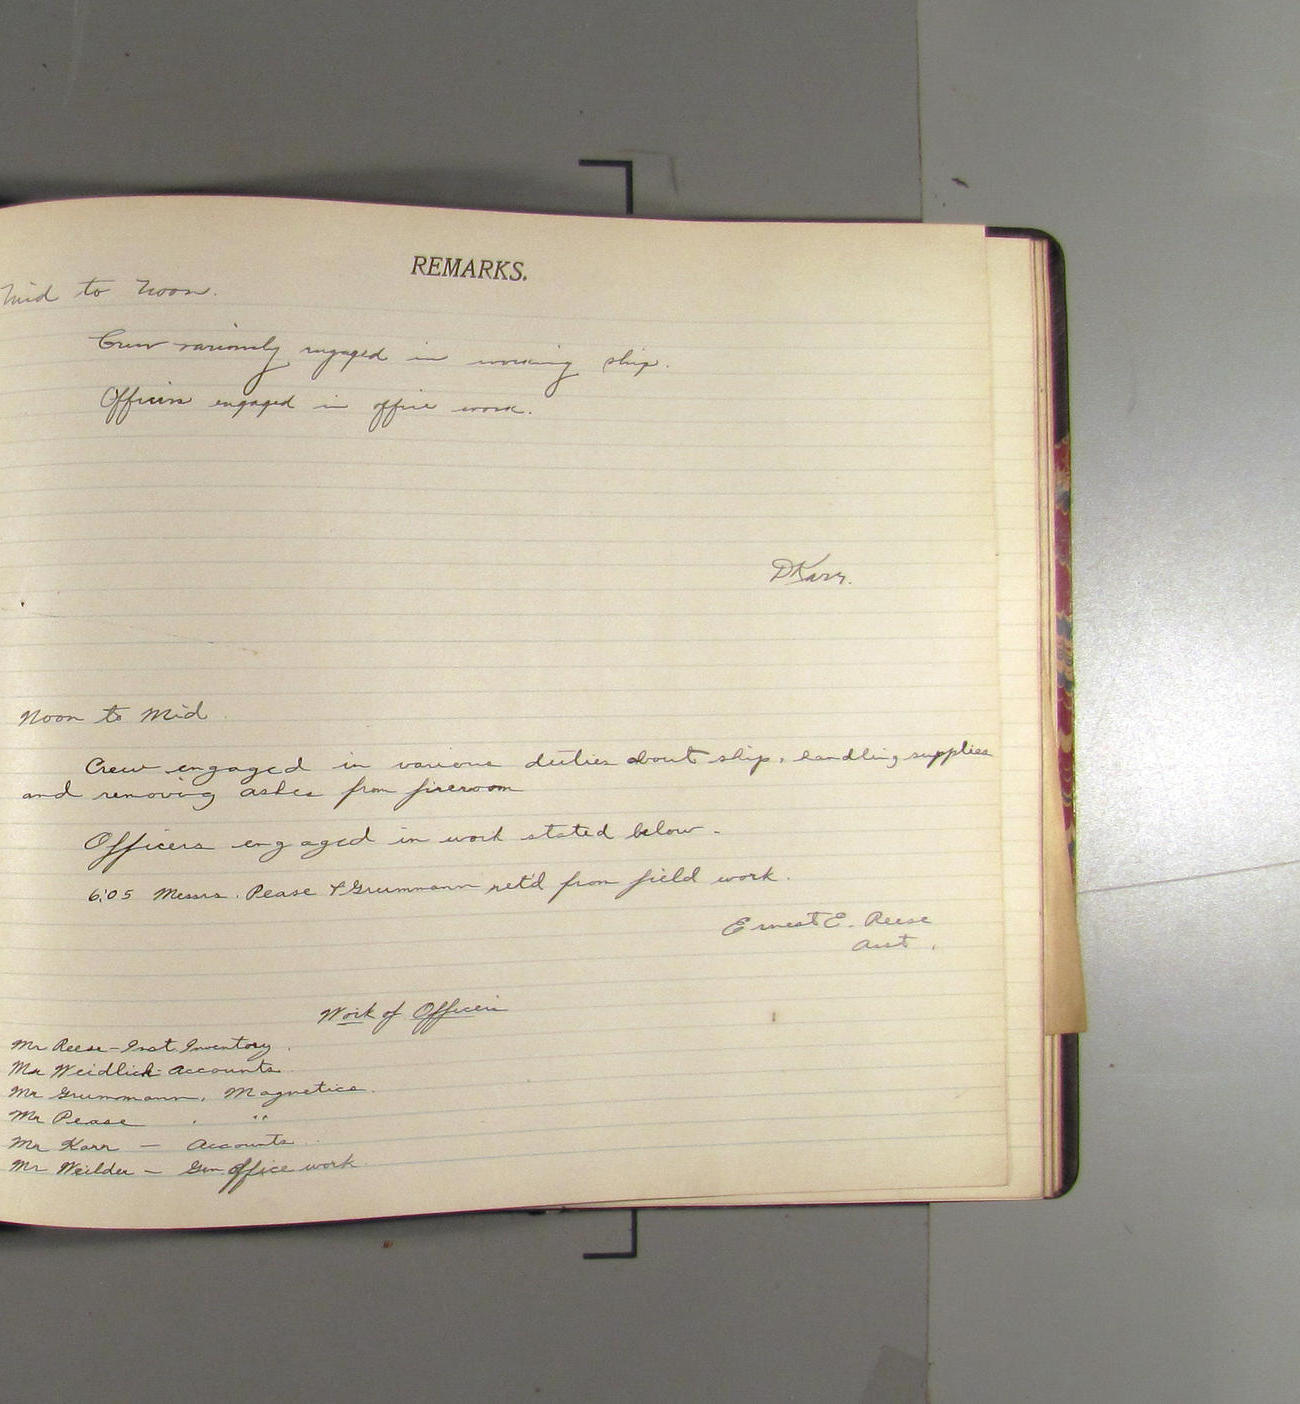 REMARKS.
Mid to Noon.
Crew variously engaged in working ship.
Officers engaged in office work.
DKarr.
Noon to Mid
Crew engaged in various duties about ship, handling supplies
and removing ashes from fireroom
Officers engaged in work stated below.
6:05 Messrs. Pease & Grummann ret'd from field work.
Ernest E. Reese
Asst.
Work of Officers
Mr Reese - Inst. Inventory.
Mr Weidlich - Accounts.
Mr Grummann, Magnetics.
Mr Pease " "
Mr Karr - Accounts
Mr - Gen Office work